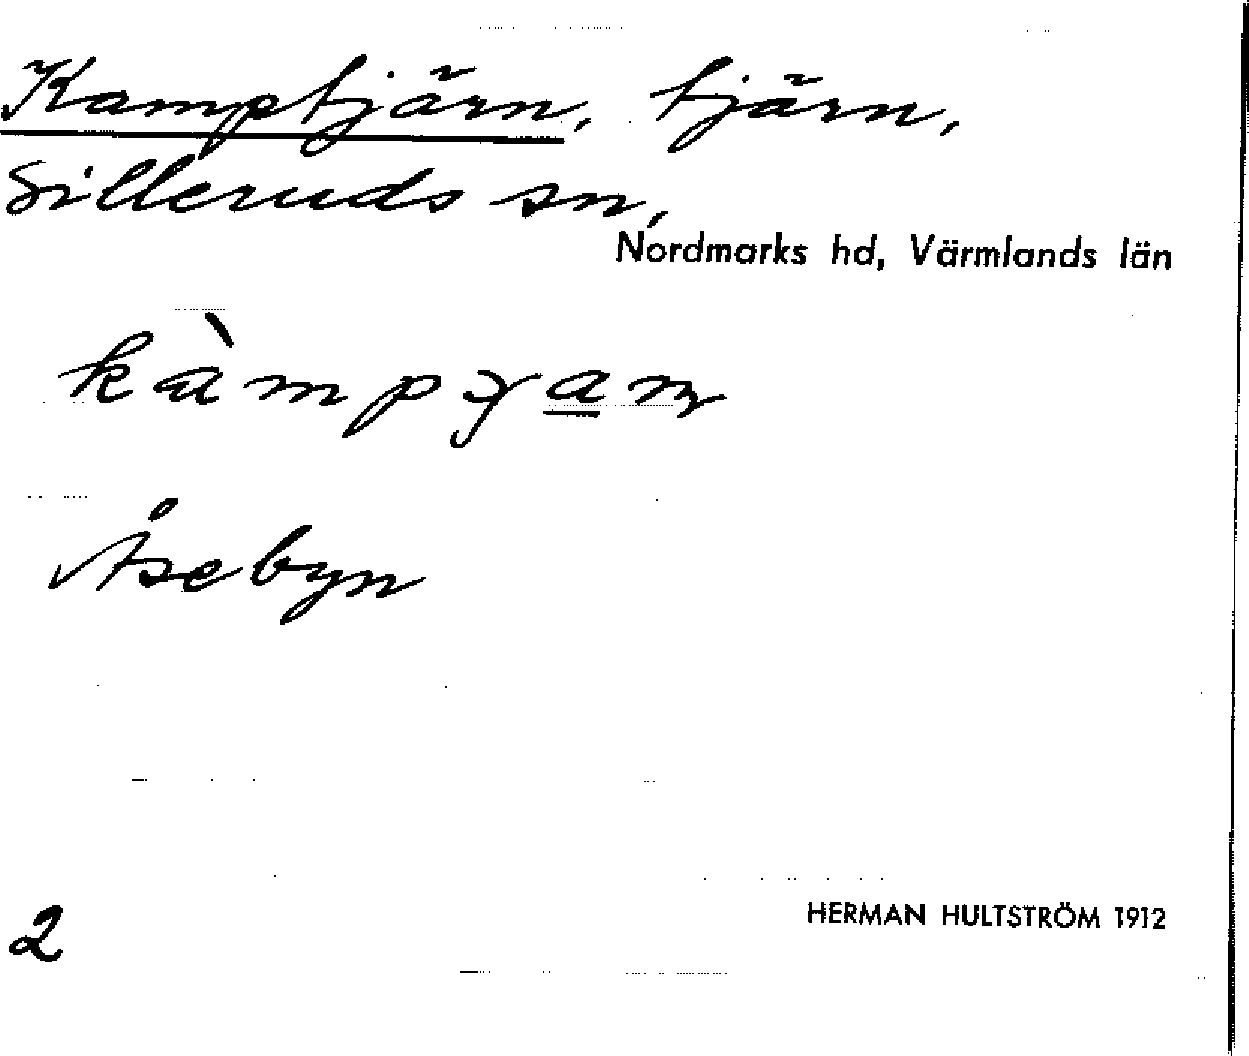 Kamptjärn, tjärn,
Silleruds sn,
Nordmarks hd, Värmlands län
Åsebyn
2
HERMAN HULTSTRÖM 1912